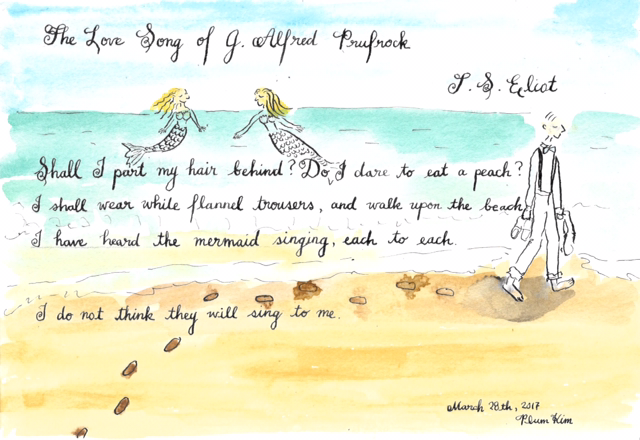 The Love Song of G. Alfred Prufrock
T. S. Eliot
Shall I part my hair behind? Do I dare to eat a peach?
I shall wear while flannel trousers, and walk upon the beach
I have heard the mermaid singing, each to each.
I do not think they will sing to me.
March 28th, 2017
Plum Kim